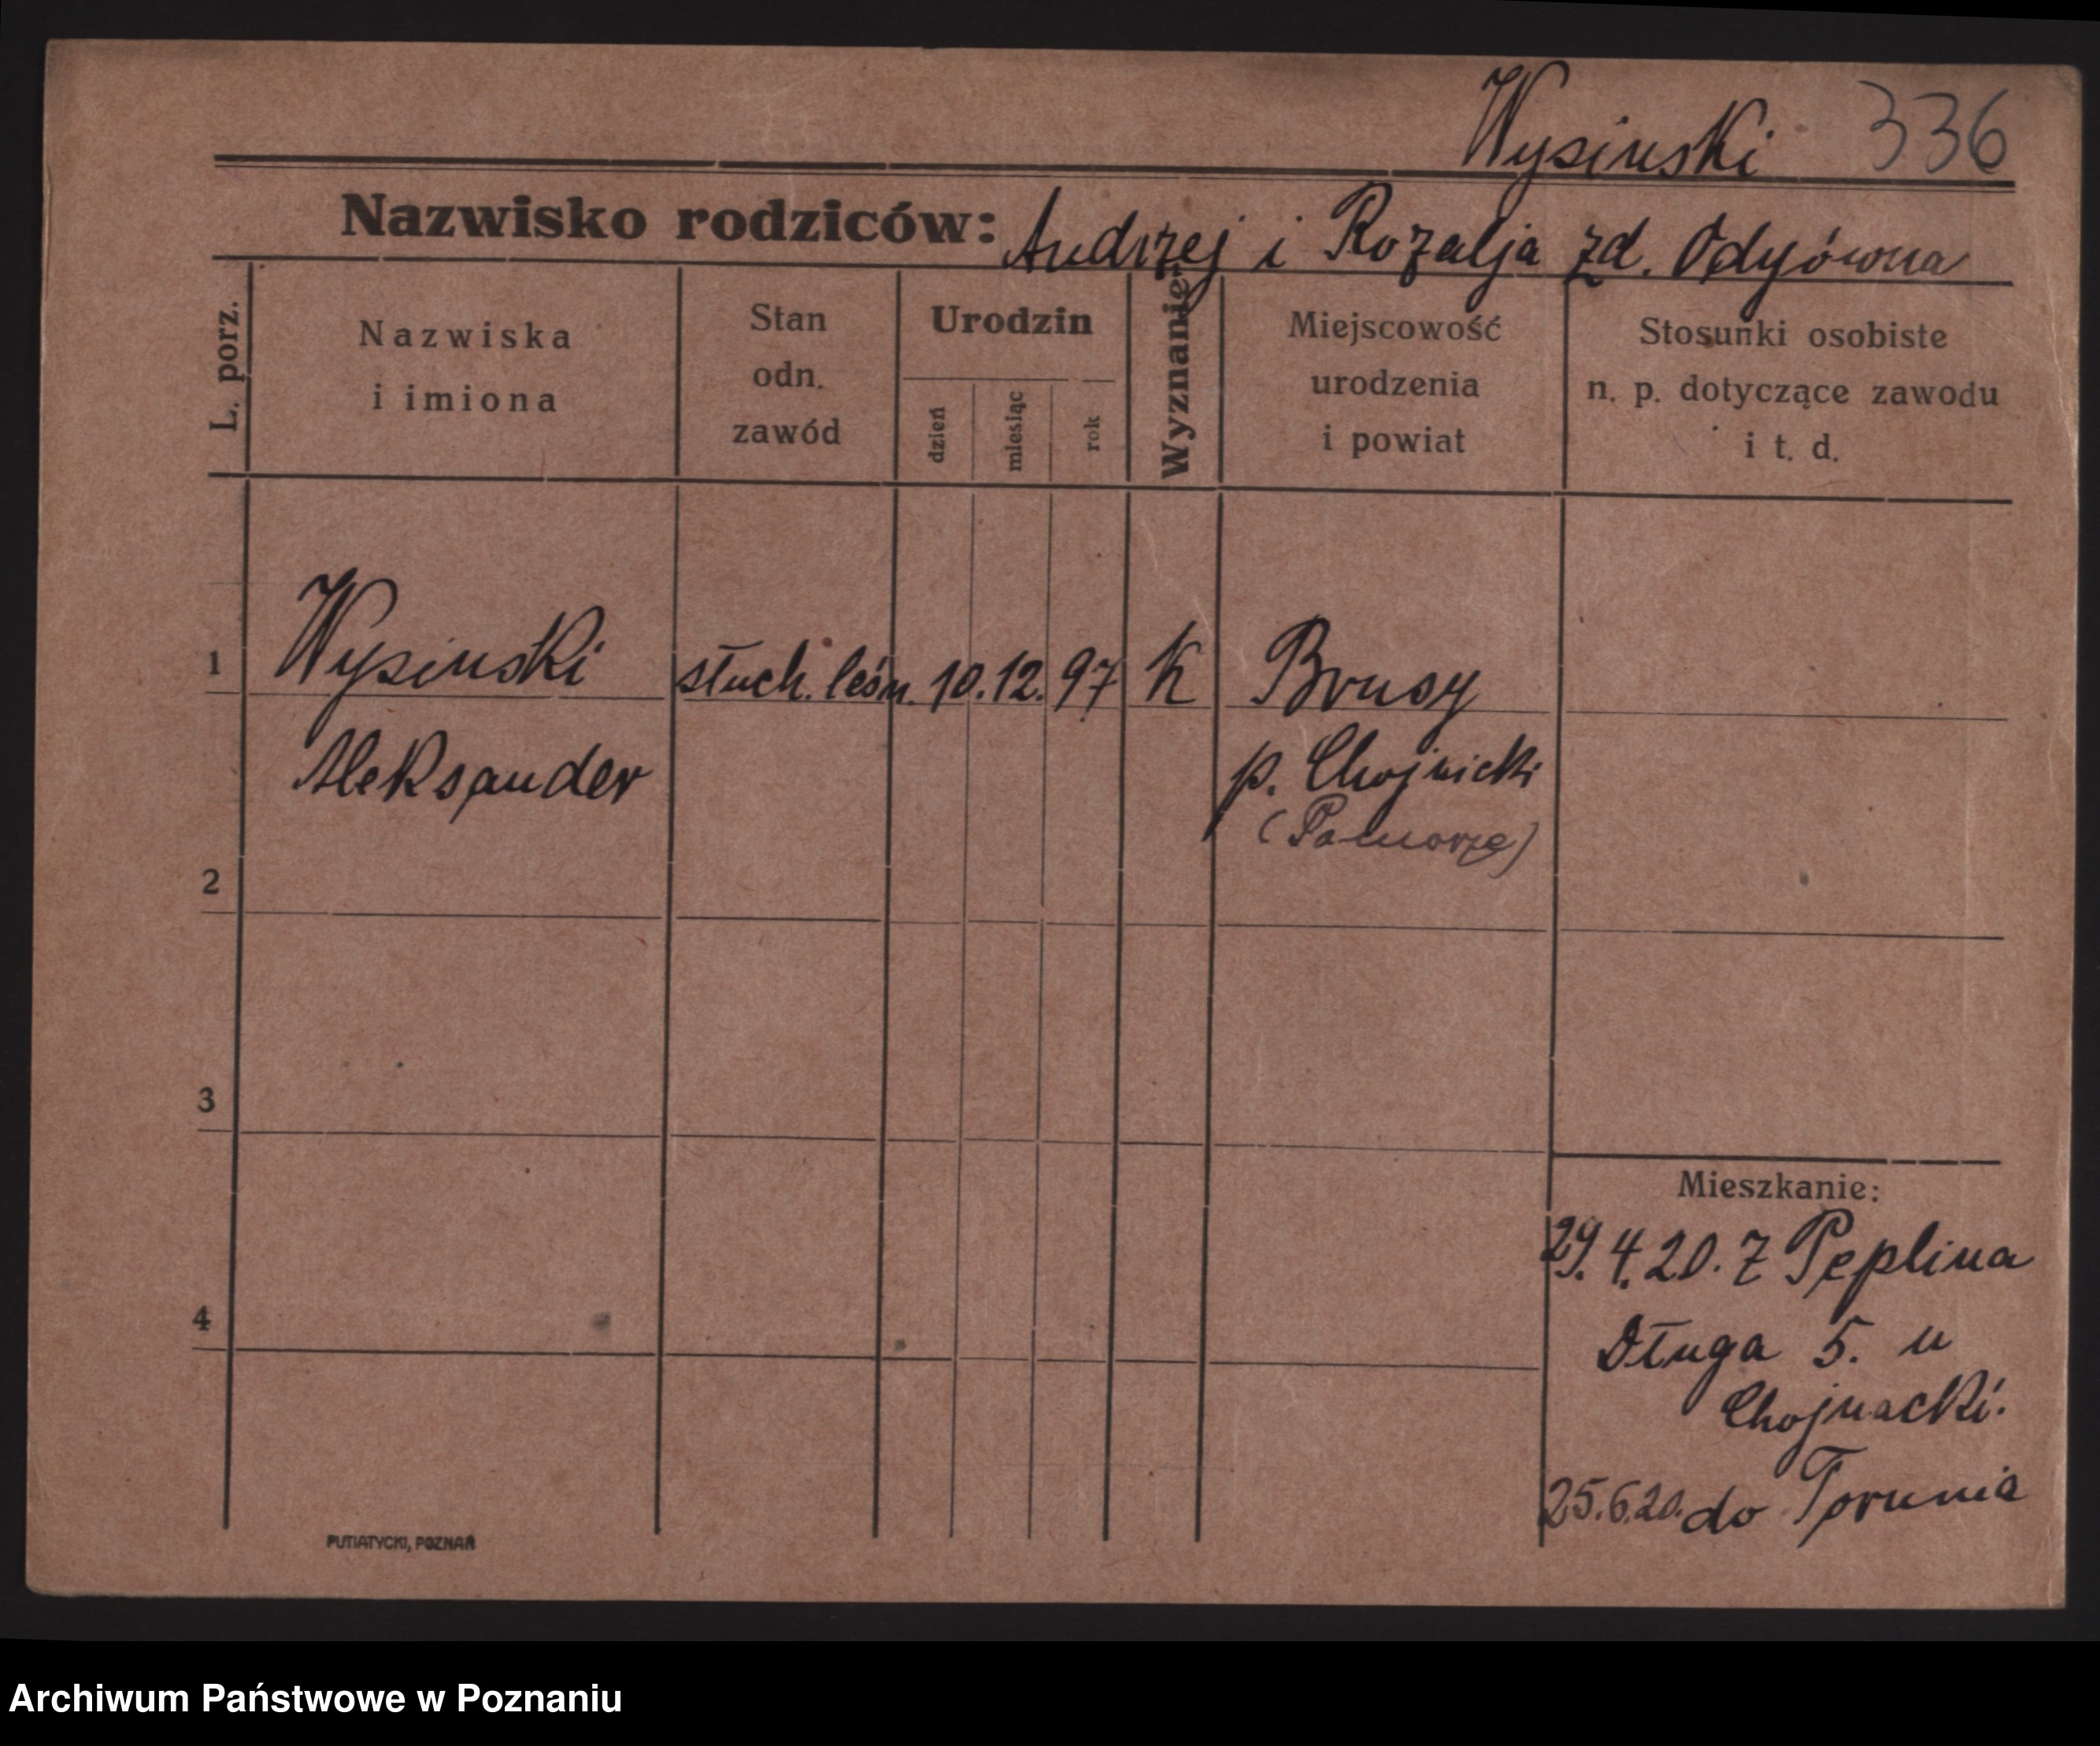 Wysinski 336
Nazwisko rodziców: Andrzej i Rozalja zd. Odyówna
L. porz.
Nazwiska
i imiona
Stan
odn.
zawód
Urodzin
dzień
miesiąc
rok
Wyznanie
Miejscowość
urodzenia
i powiat
Stosunki osobiste
n. p. dotyczące zawodu
i t. d.
1 Wysinski słuch. leśn. 10. 12. 97 K Brusy
Aleksander p. Chojnicki
(Pomorze)
2
3
4
Mieszkanie:
29.4.20. Z Peplina
Długa 5. u
Chojnacki.
25.6.20. do Torunia
PUTIATYCKI, POZNAŃ
Archiwum Państwowe w Poznaniu